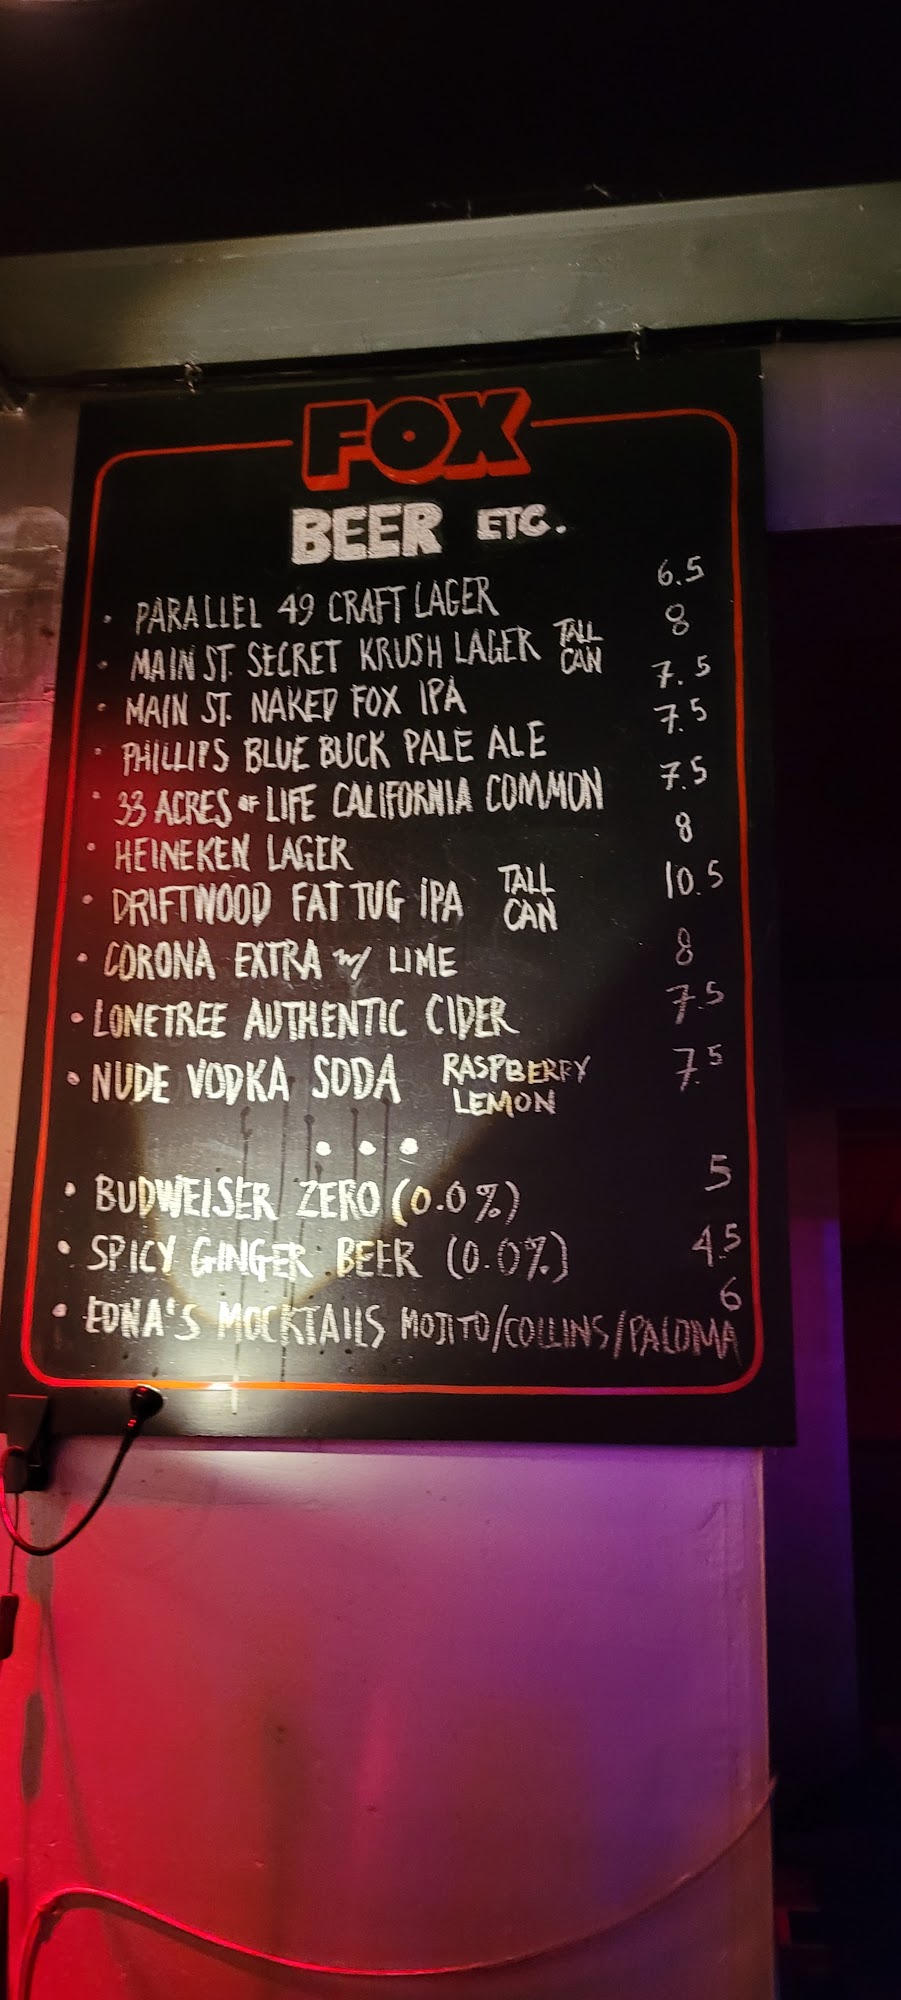 FOX
BEER ETC.
• PARALLEL 49 CRAFT LAGER 6.5
• MAIN ST. SECRET KRUSH LAGER TALL CAN 8
• MAIN ST. NAKED FOX IPA 7.5
• PHILLIPS BLUE BUCK PALE ALE 7.5
• 33 ACRES OF LIFE CALIFORNIA COMMON 7.5
• HEINEKEN LAGER 8
• DRIFTWOOD FAT TUG IPA TALL CAN 10.5
• CORONA EXTRA W/ LIME 8
• LONETREE AUTHENTIC CIDER 7.5
• NUDE VODKA SODA RASPBERRY LEMON 7.5
• • •
• BUDWEISER ZERO (0.0%) 5
• SPICY GINGER BEER (0.0%) 4.5
• EDNA'S MOCKTAILS MOJITO/COLLINS/PALOMA 6